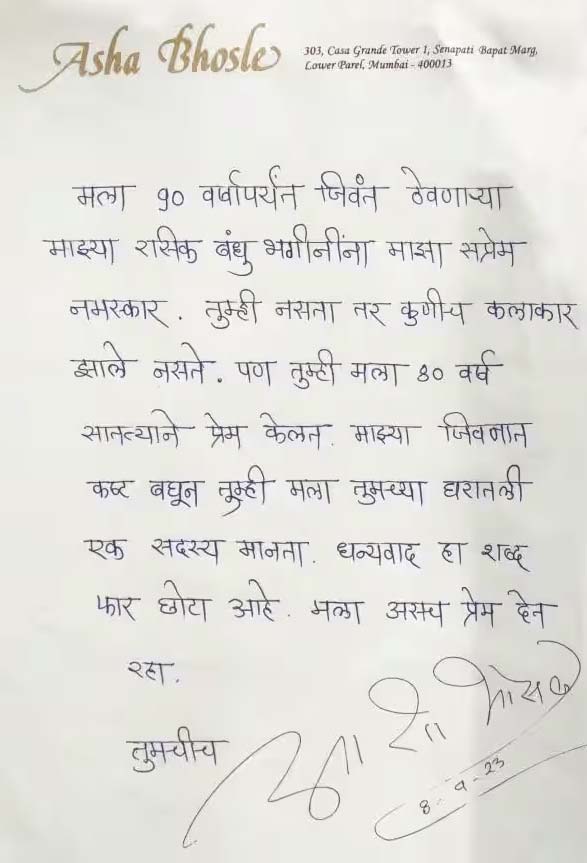 Asha Bhosle
303, Casa Grande Tower 1, Senapati Bapat Marg,
Lower Parel, Mumbai - 400013
मला ९० वर्षापर्यंत जिवंत ठेवणाऱ्या
माझ्या रसिक बंधु भगीनींना माझा सप्रेम
नमस्कार. तुम्ही नसता तर कुणीच कलाकार
झाले नसते. पण तुम्ही मला ८० वर्ष
सातत्याने प्रेम केलत. माझ्या जिवनात
कष्ट बघून तुम्ही मला तुमच्या घरातली
एक सदस्य मानता. धन्यवाद हा शब्द
फार छोटा आहे. मला असच प्रेम देत
रहा.
तुमचीच
आशा भोसले
8-9-23